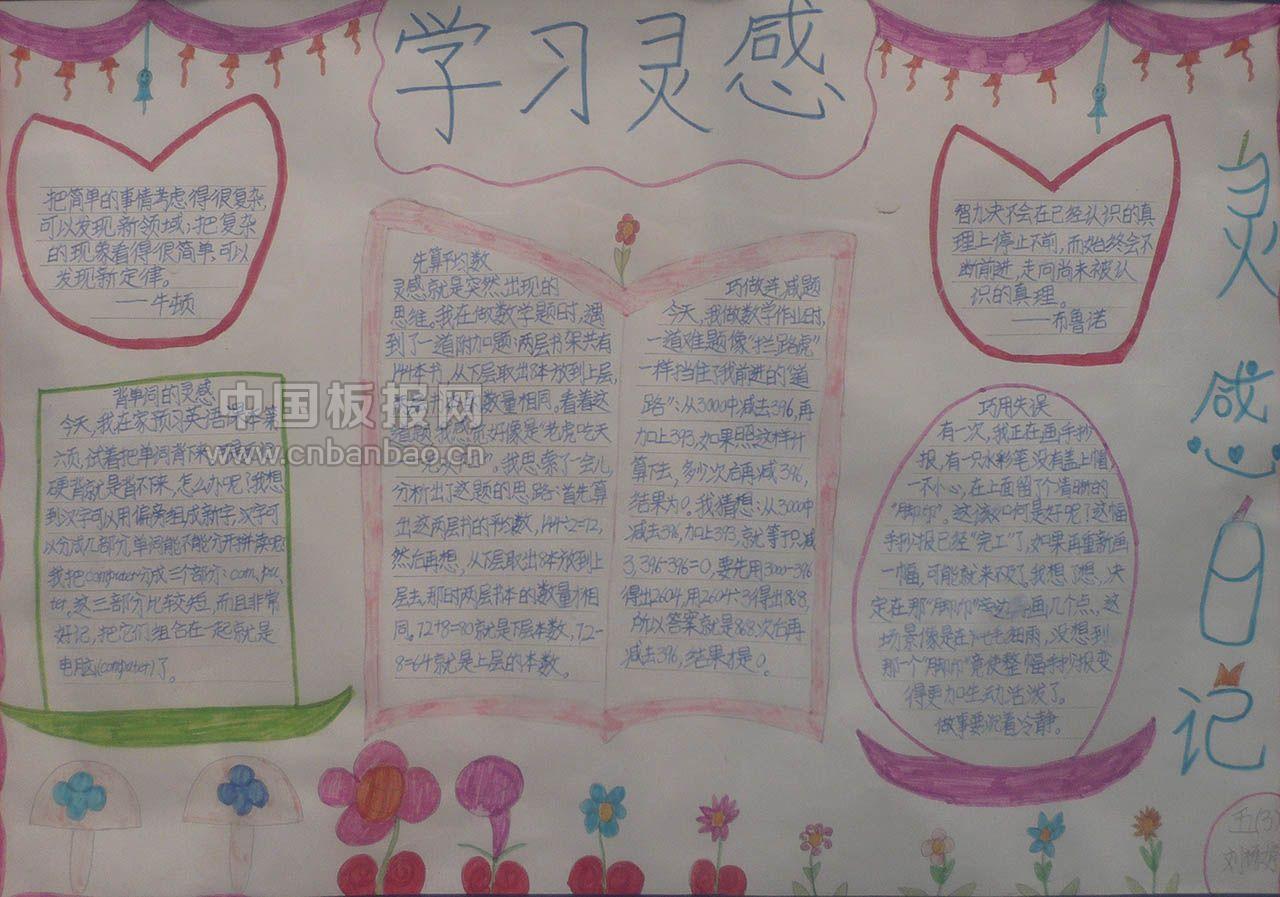 学习灵感
把简单的事情考虑得很复杂
可以发现新领域;把复杂
的现象看得很简单,可以
发现新定律。
——牛顿
背单词的灵感
今天,我在家预习英语课本第
六页,试着把单词背下来
硬背就是背不来,怎么办呢?我想
到汉字可以用偏旁组成新字,汉字可
以分成几部分,单词能不能分开拼读呢
我把computer分成三个部分:com,pu,
ter,这三部分比较短,而且非常
好记,把它们组合在一起就是
电脑(computer)了。
先算平均数
灵感就是突然出现的
思维。我在做数学题时,遇
到了一道附加题:两层书架共有
144本书,从下层取出8本放到上层,
数量相同。看着这
道题,我感觉好像是“老虎吃天
”。我思索了一会儿,
分析出了这题的思路:首先算
出这两层书的平均数,144÷2=72,
然后再想,从下层取出8本放到上
层去,那时两层书本的数量才相
同。72+8=80就是下层本数,72-
8=64就是上层的本数。
巧做连减题
今天,我做数学作业时,
一道难题像“拦路虎”
一样挡住了我前进的“道
路”:从3000中减去396,再
加上393,如果照这样计
算下去,多少次后再减396,
结果为0。我猜想:从3000中
减去396,加上393,就等于只减
3,396-396=0,要先用3000-396
得出2604,用2604÷3得出868,
所以答案就是868次后再
减去396,结果才是0。
智力决不会在已经认识的真
理上停止不前,而始终会不
断前进,走向尚未被认
识的真理。
——布鲁诺
巧用失误
有一次,我正在画手抄
报,有一只水彩笔没有盖上帽,
一不小心,在上面留了个清晰的
“脚印”。这该如何是好呢?这幅
手抄报已经“完工”了,如果再重新画
一幅,可能就来不及了,我想了想,决
定在那“脚印”旁边画几个点,这
场景像是在细雨,没想到
那一个“脚印”竟使整幅手抄报变
得更加生动活泼了。
做事要沉着冷静。
灵感日记
五(3
刘
中国板报网
www.cnbanbao.cn